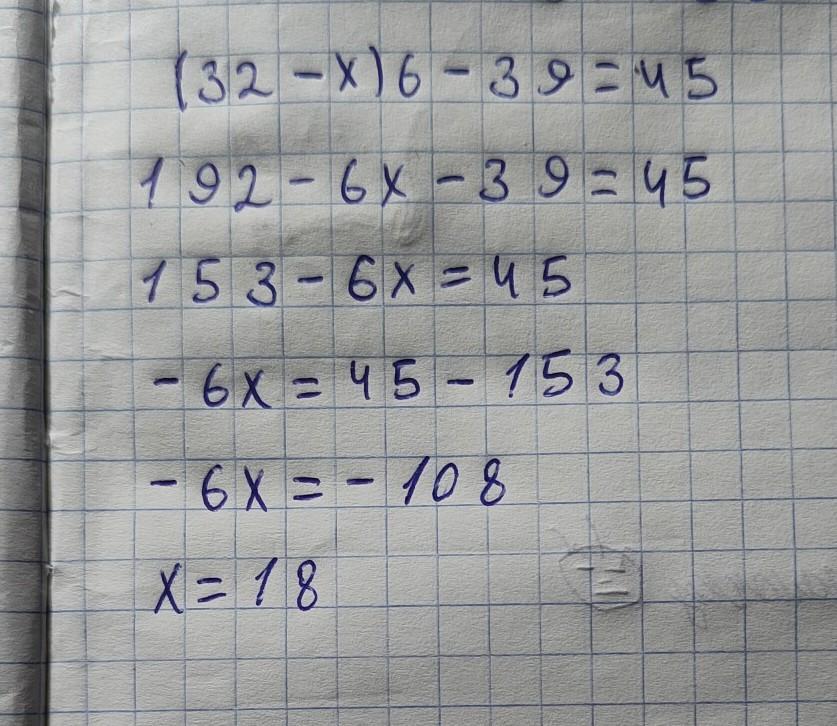 (32-x)6-39=45
192-6x-39=45
153-6x=45
-6x=45-153
-6x=-108
x=18